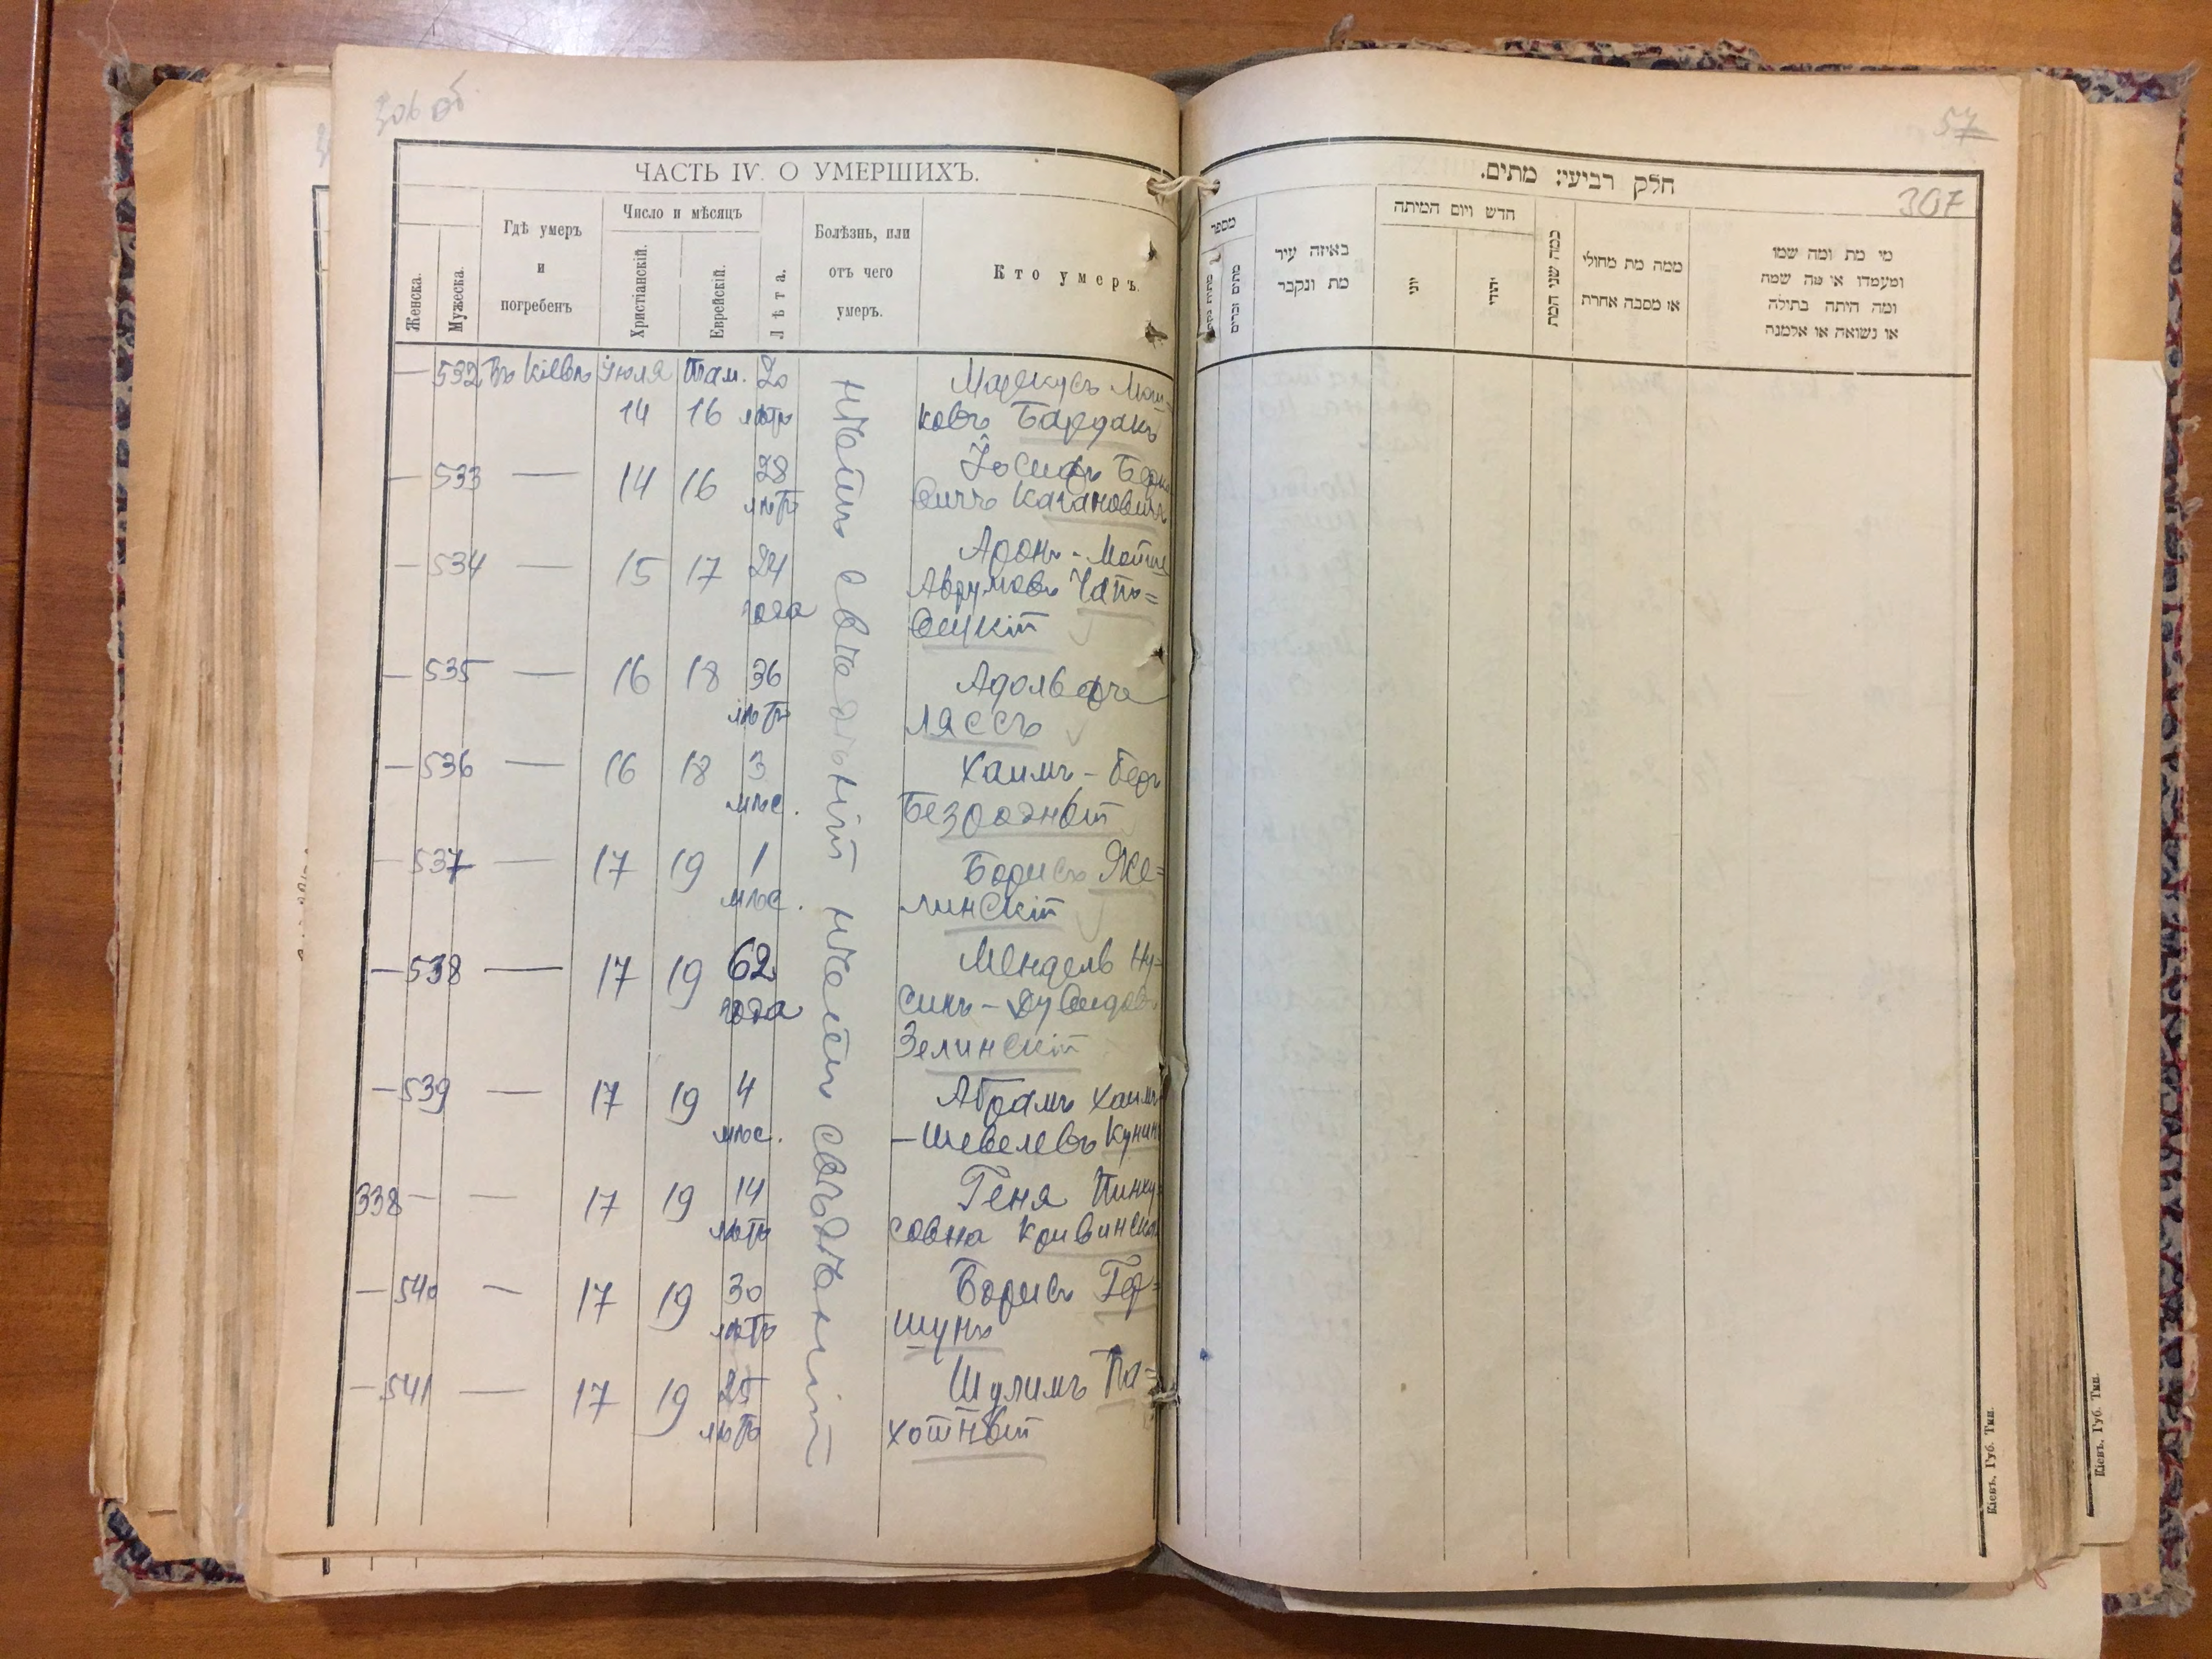 306 об
ЧАСТЬ IV. О УМЕРШИХЪ.
Женска.
Мужеска.
Гдѣ умеръ
и
погребенъ
Число и мѣсяцъ
Христіанскій.
Еврейскій.
Лѣта.
Болѣзнь, или
отъ чего
умеръ.
Кто умеръ.
— 532 Въ Кіевѣ Іюля Там. 20 Маркусъ Мош-
14 16 лѣтъ ковъ Бардакъ
— 533 — 14 16 28 Іосифъ Берко
лѣтъ вичъ Кагановичъ
— 534 — 15 17 24 Аронъ-Мотше
года Аврумовъ Чапо=
вецкій
— 535 — 16 18 36 Адольфъ
лѣтъ Ляссъ
— 536 — 16 18 3 Хаимъ-Беръ
мѣс. Безродный
— 537 — 17 19 1 Борисъ Же=
мѣс. линскій
— 538 — 17 19 62 Мендель Ну-
года синъ-Дувидовъ
Зелинскій
— 539 — 17 19 4 Абрамъ Хаимъ
мѣс. -Шевелевъ Кунинъ
338 — — 17 19 14 Геня Пинку
лѣтъ совна Кривинска
— 540 — 17 19 30 Борисъ Гер=
лѣтъ шунъ
— 541 — 17 19 25 Шулимъ Па=
лѣтъ хотный
нѣтъ свѣдѣній нѣтъ свѣдѣній
57
307
חלק רביעי: מתים.
מספר
מתים זכרים
באיזה עיר
מת ונקבר
חדש ויום המיתה
יוני
יהודי
כמה שני המת
ממה מת מחולי
או מסבה אחרת
מי מת ומה שמו
ומעמדו או מה שמה
ומה היתה בתולה
או נשואה או אלמנה
Кіевъ, Губ. Тип.
Кіевъ, Губ. Тип.